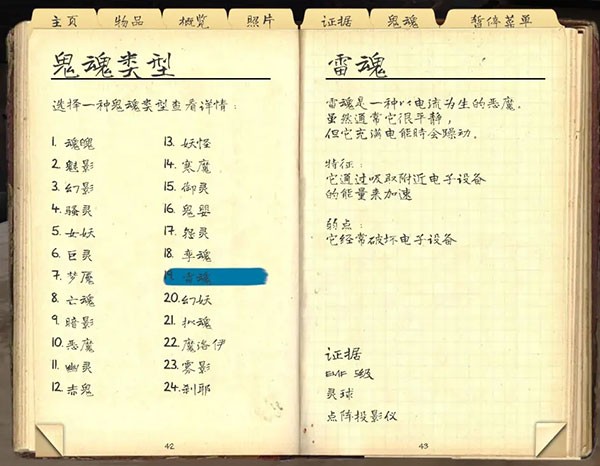 主页
物品
概览
照片
证据
鬼魂
暂停菜单
鬼魂类型
选择一种鬼魂类型查看详情：
1. 魂魄
2. 魅影
3. 幻影
4. 骚灵
5. 女妖
6. 巨灵
7. 梦魇
8. 亡魂
9. 暗影
10. 恶魔
11. 幽灵
12. 赤鬼
13. 妖怪
14. 寒魔
15. 御灵
16. 鬼婴
17. 怨灵
18. 孪魂
19. 雷魂
20. 幻妖
21. 拟魂
22. 魔洛伊
23. 雾影
24. 刹耶
42
雷魂
雷魂是一种以电流为生的恶魔，
虽然通常它很平静，
但它充满电能时会躁动。
特征：
它通过吸取附近电子设备
的能量来加速
弱点：
它经常破坏电子设备
证据
EMF 5级
灵球
点阵投影仪
43